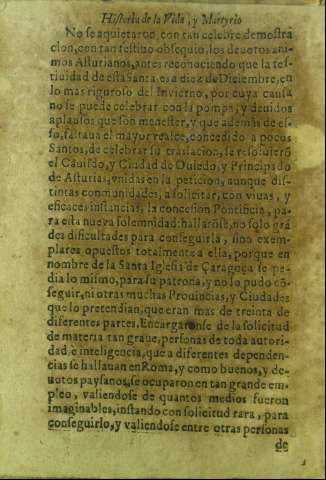 Historia de la Vida, y Martyrio
No se aquietaron, con tan celebre demostra
cion, con tan festiuo obsequio, los deuotos ani-
mos Asturianos, antes reconociendo que la fes-
tiuidad de esta Santa es a diez de Diciembre, en
lo mas riguroso del Inuierno, por cuya causa
no se puede celebrar con la pompa, y deuidos
aplausos que son menester, y que ademàs de es-
so, faltaua el mayor realce, concedido a pocos
Santos, de celebrar su traslacion, se resoluierõ
el Cauildo, y Ciudad de Ouiedo, y Principado
de Asturias, vnidas en la peticion, aunque dis-
tintas comunidades, a solicitar, con viuas, y
eficaces instancias, la concession Pontificia, pa-
ra esta nueva solemnidad: hallaronse, no solo grã
des dificultades para conseguirla, sino exem-
plares opuestos totalmente a ella, porque en
nombre de la Santa Iglesia de Çaragoça se pe-
dia lo mismo, para su patrona, y no lo pudo cõ-
seguir, ni otras muchas Prouincias, y Ciudades
que lo pretendian, que eran mas de treinta de
diferentes partes. Encargaronse de la solicitud
de materia tan graue, personas de toda autori-
dad, è inteligencia, que a diferentes dependen-
cias se hallauan en Roma, y como buenos, y de-
uotos paysanos, se ocuparon en tan grande em-
pleo, valiendose de quantos medios fueron
imaginables, instando con solicitud rara, para
conseguirlo, y valiendose entre otras personas
de